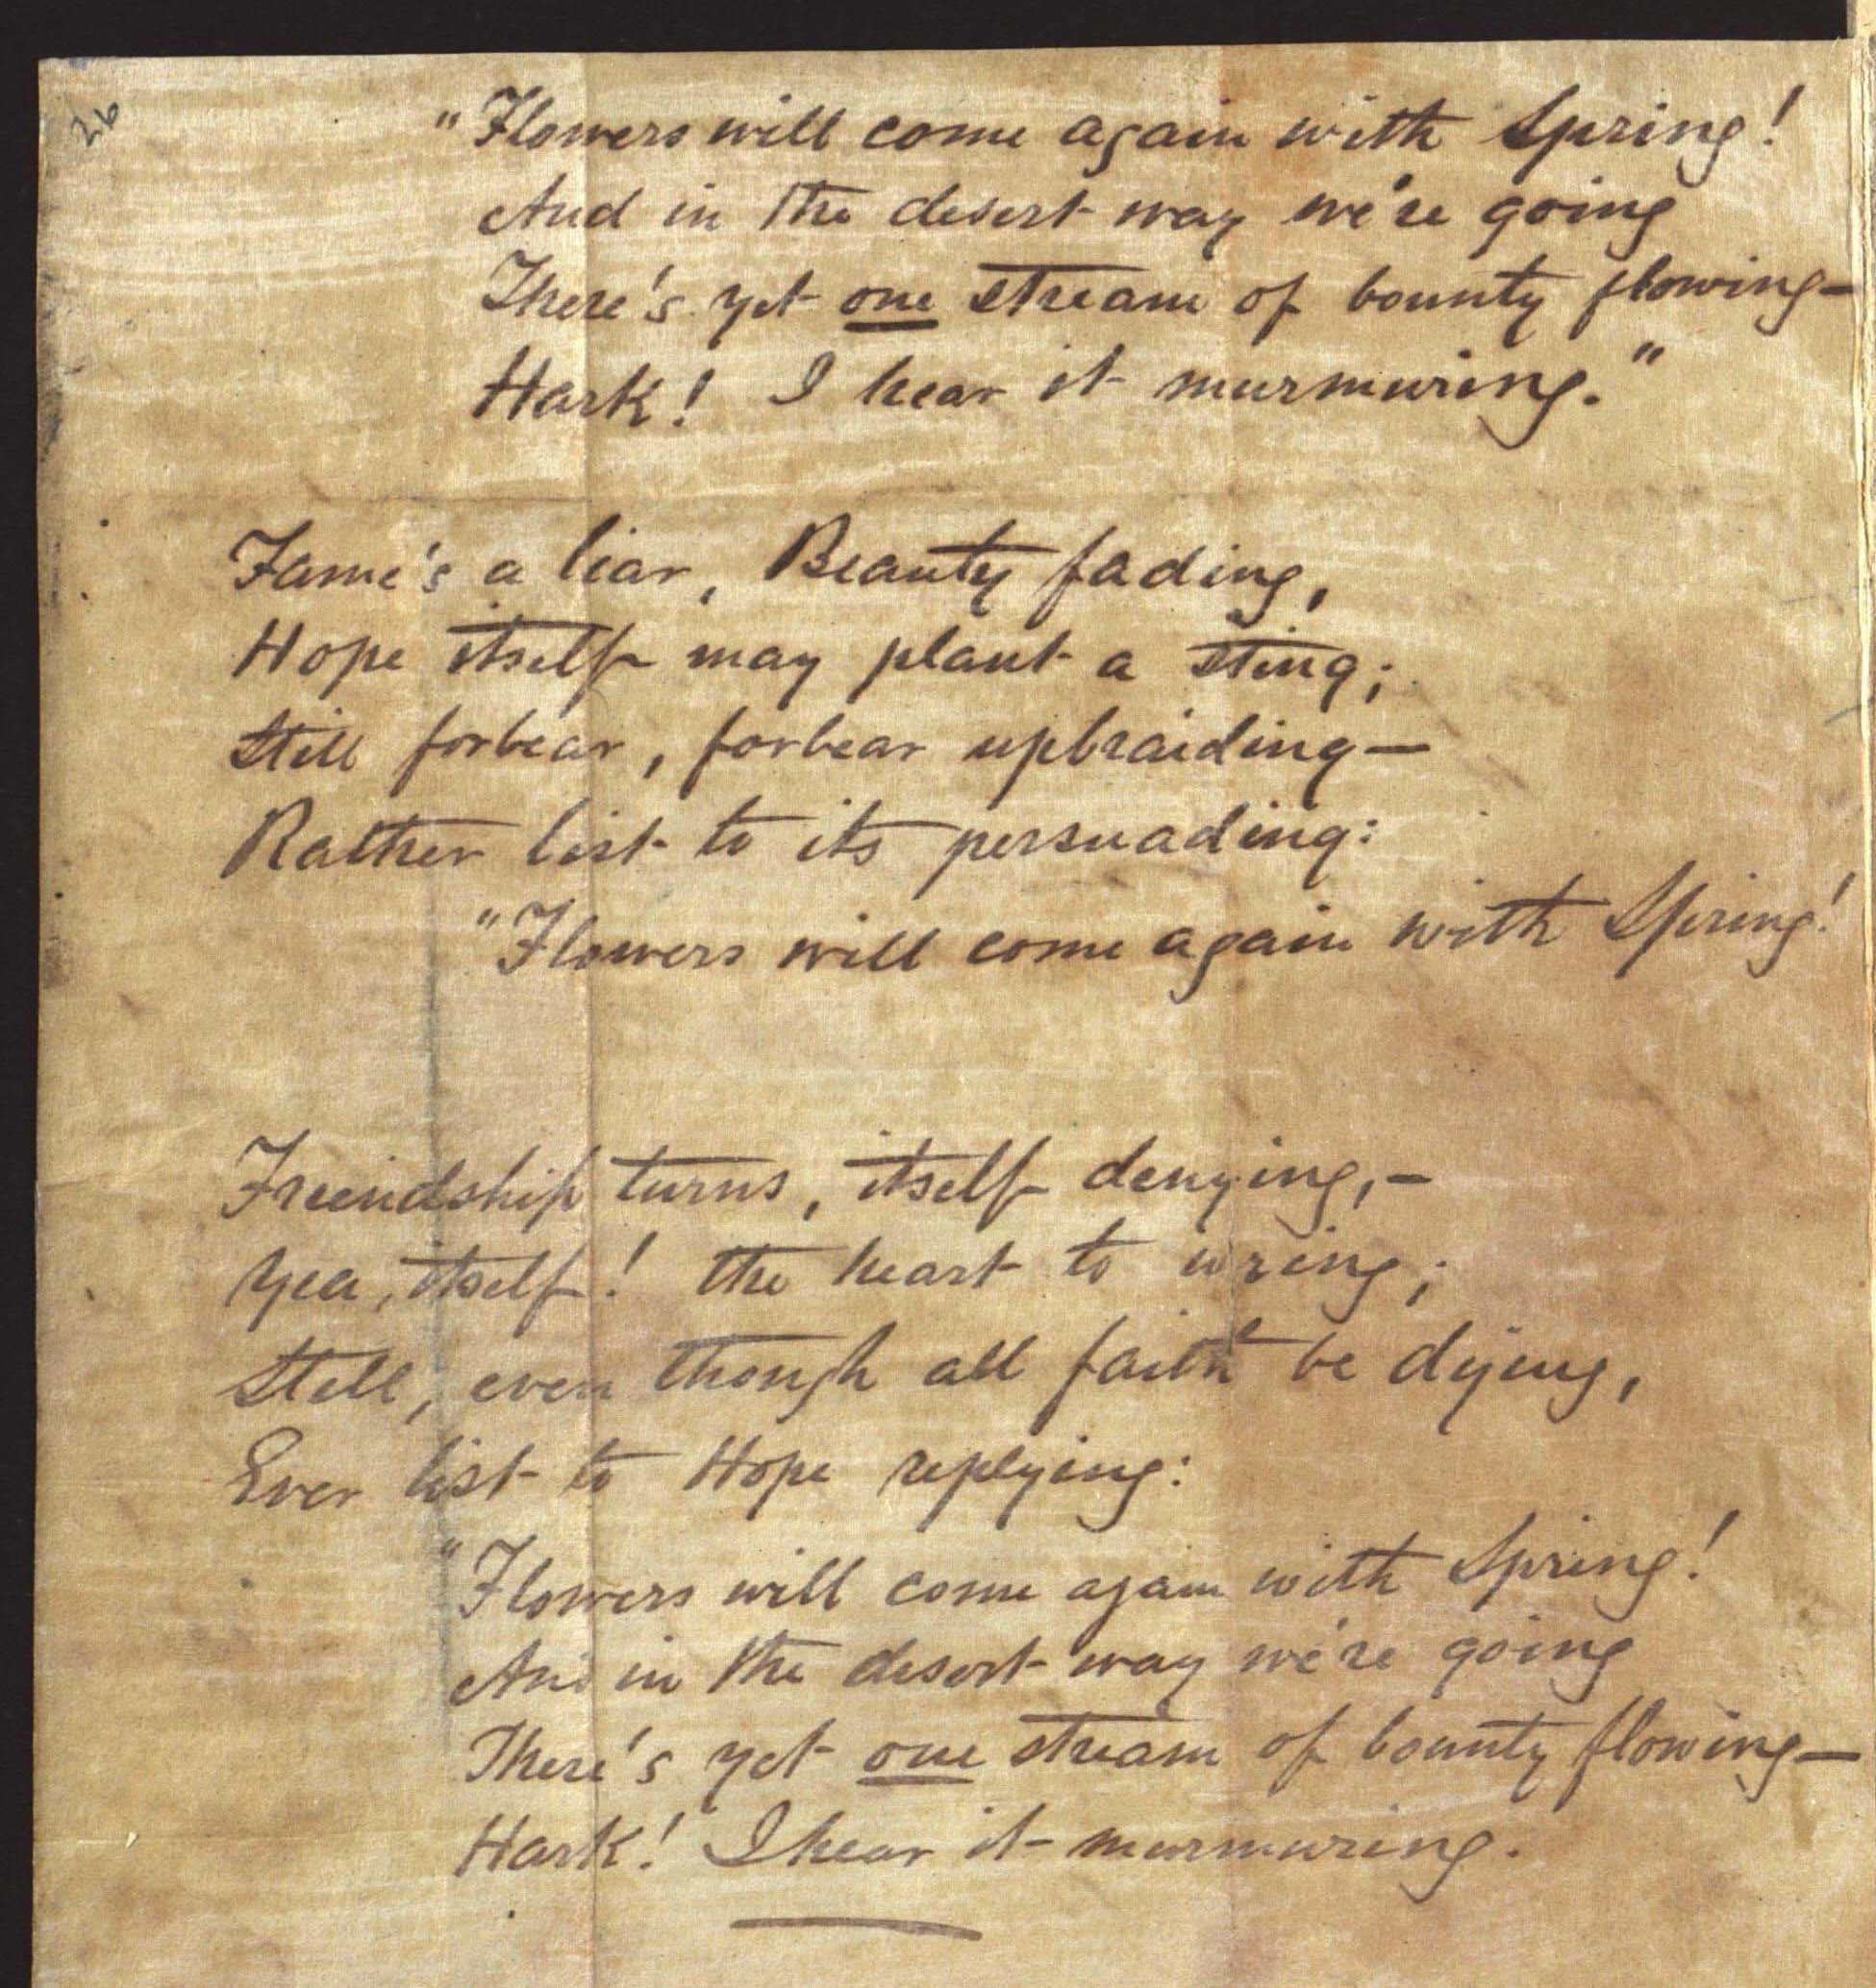 26
"Flowers will come again with Spring!
And in the desert way we're going
There's yet one stream of bounty flowing—
Hark! I hear it murmuring."
Fame's a liar, Beauty fading,
Hope itself may plant a sting;
Still forbear, forbear upbraiding—
Rather list to its persuading:
"Flowers will come again with Spring!
Friendship turns, itself denying,—
Yea, itself! the heart to wring;
Still, even though all faith be dying,
Ever list to Hope replying:
"Flowers will come again with Spring!
And in the desert way we're going
There's yet one stream of bounty flowing—
Hark! I hear it murmuring.